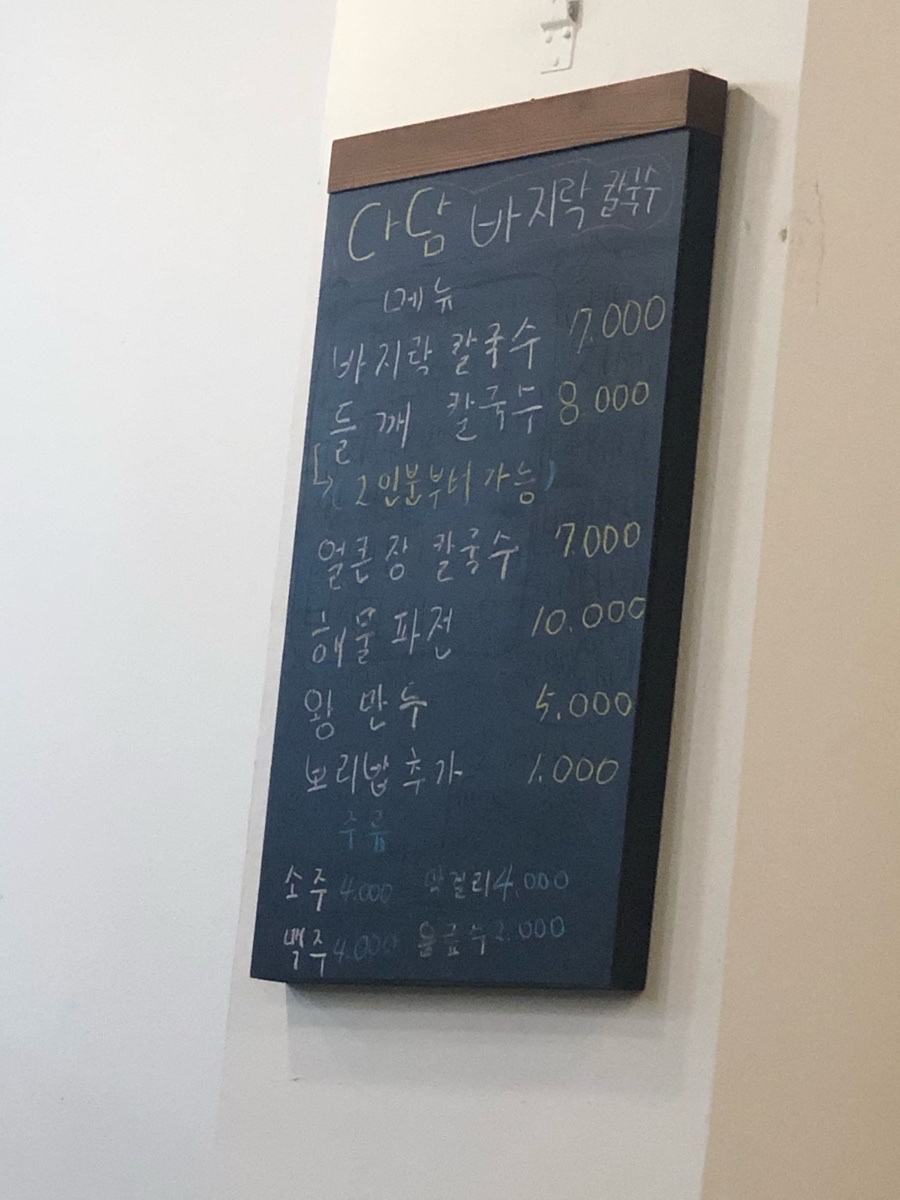 다담 바지락 칼국수
메뉴
바지락 칼국수 7.000
들깨 칼국수 8.000
→ (2인분부터 가능)
얼큰장 칼국수 7.000
해물파전 10.000
왕만두 5.000
보리밥추가 1.000
주류
소주 4.000 막걸리 4.000
맥주 4.000 음료수 2.000